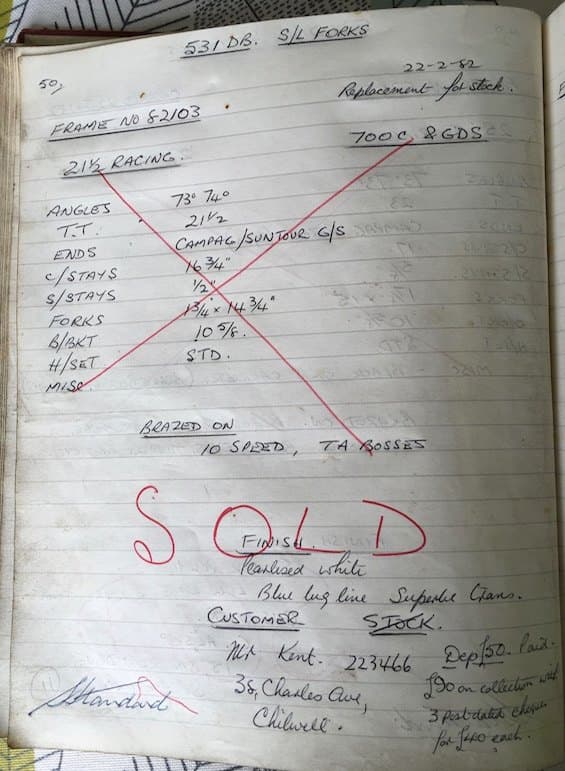 531 DB. S/L FORKS
50,
22-2-82
Replacement for stock.
FRAME NO 82103
700c & GDS
21½ RACING.
ANGLES 73° 74°
T.T. 21½
ENDS CAMPAG/SUNTOUR G/S
C/STAYS 16¾"
S/STAYS ½"
FORKS 1¾ x 14¾"
B/BKT 10⅝.
H/SET STD.
MISC.
BRAZED ON
10 SPEED, TA BOSSES
SOLD
FINISH.
Pearlised white
Blue lug line Superbe trans.
CUSTOMER STOCK.
Mr Kent. 223466 Dep £50. Paid.
38, Charles Ave, £90 on collection with
Chilwell. 3 post dated cheques
for £40 each.
11
Standard